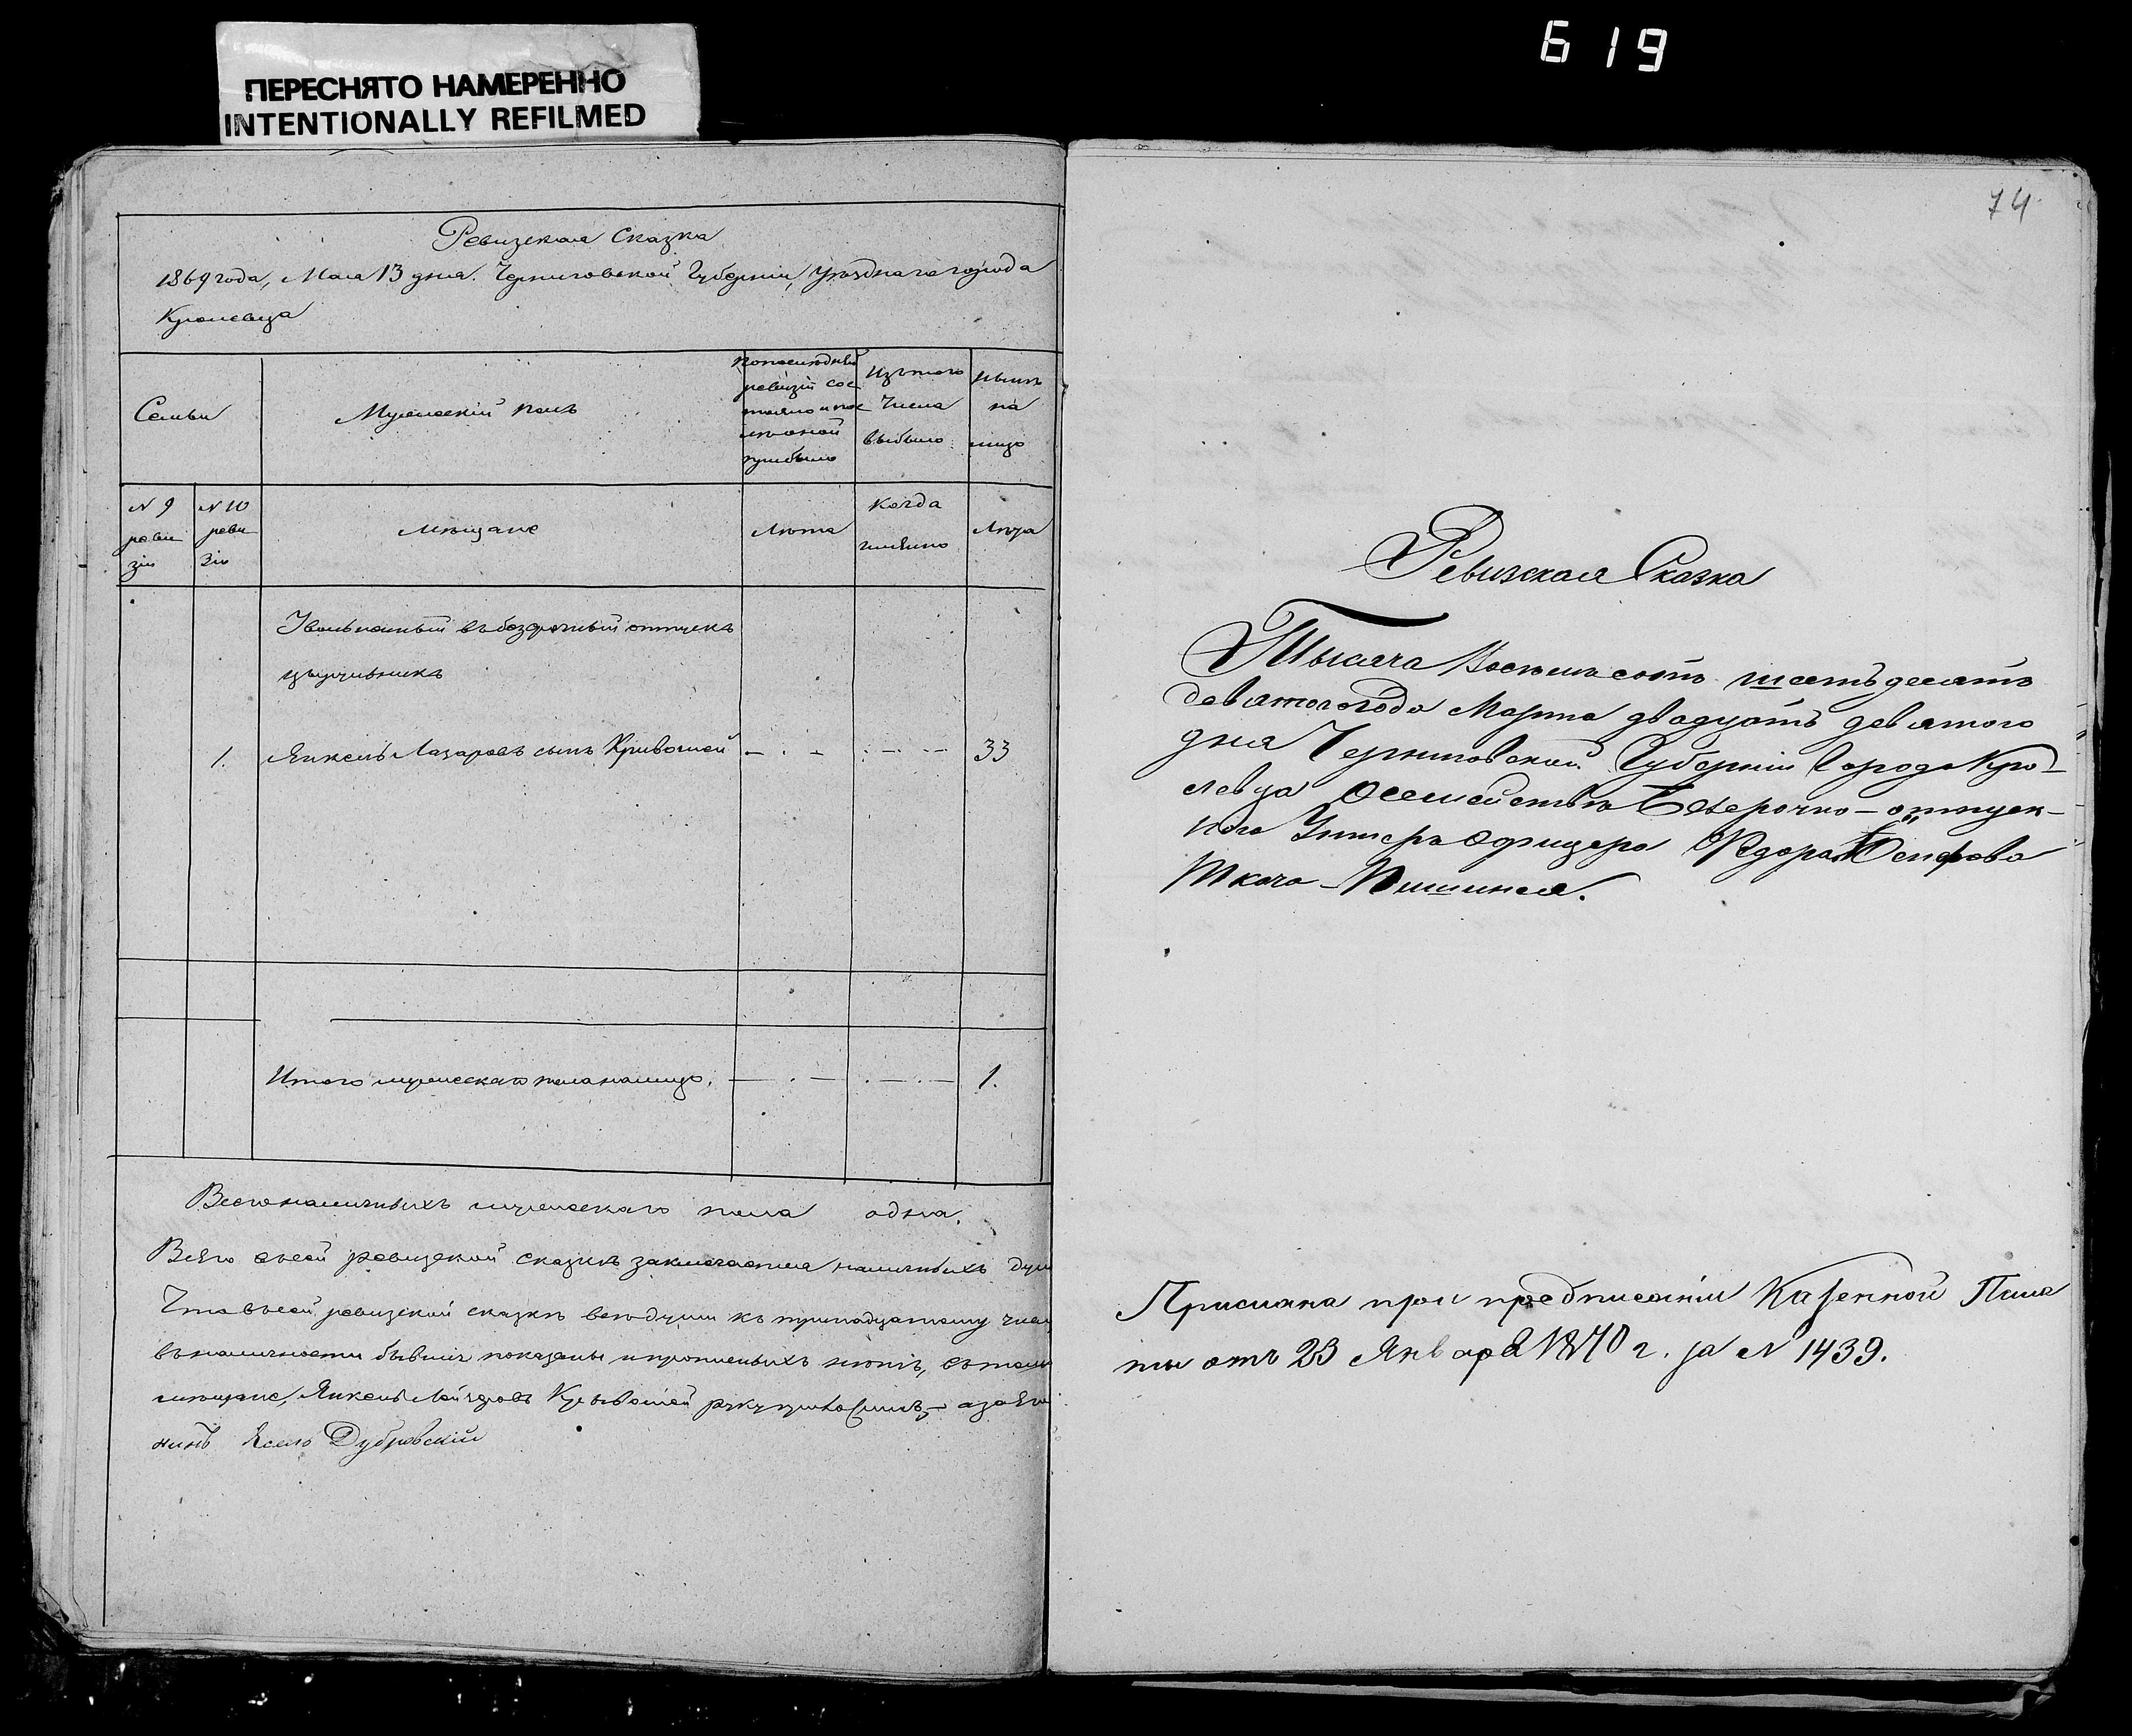 619
ПЕРЕСНЯТО НАМЕРЕННО
INTENTIONALLY REFILMED
Ревизская Сказка
1869 года, Мая 13 дня. Черниговской Губерніи, уезднаго города
Кролевца
Семьи
Мужескій полъ
По последней
ревизіи сос
тояло и пос
ле оной
прибыло
Изъ того
числа
выбыло
Ныне
на
лицо
N 9
реви
зіи
N 10
реви
зіи
Мѣщане
Лѣта
Когда
именно
Лѣта
Уволенный въ безсрочный отпускъ
1. Янкель Лазаровъ сынъ Кривошей 33
Итого мужескаго пола налицо. 1.
Всего наличныхъ мужескаго пола одна.
Всего въ сей ревизской сказкѣ заключается наличныхъ душ
Что въ сей ревизской сказкѣ все души къ тринадцатому чис
въ наличности бывшіе показаны и прописныхъ нетъ, въ томъ
мещане, Янкель Лейзеровъ Кривошей руку приложилъ, а за Его
Дубровскій
74
Ревизская Сказка
Тысяча Восемь сотъ шестьдесятъ
девятого года Марта двадцать девятого
дня Черниговской Губерніи Города Кро-
левца о семействе Безсрочно-отпуск-
ного Унтеръ Офицера Федора Осипова
Ткача-Пишинея.
Прислана при предписаніи Казенной Пала
ты отъ 23 Января 1870 г. за N 1439.